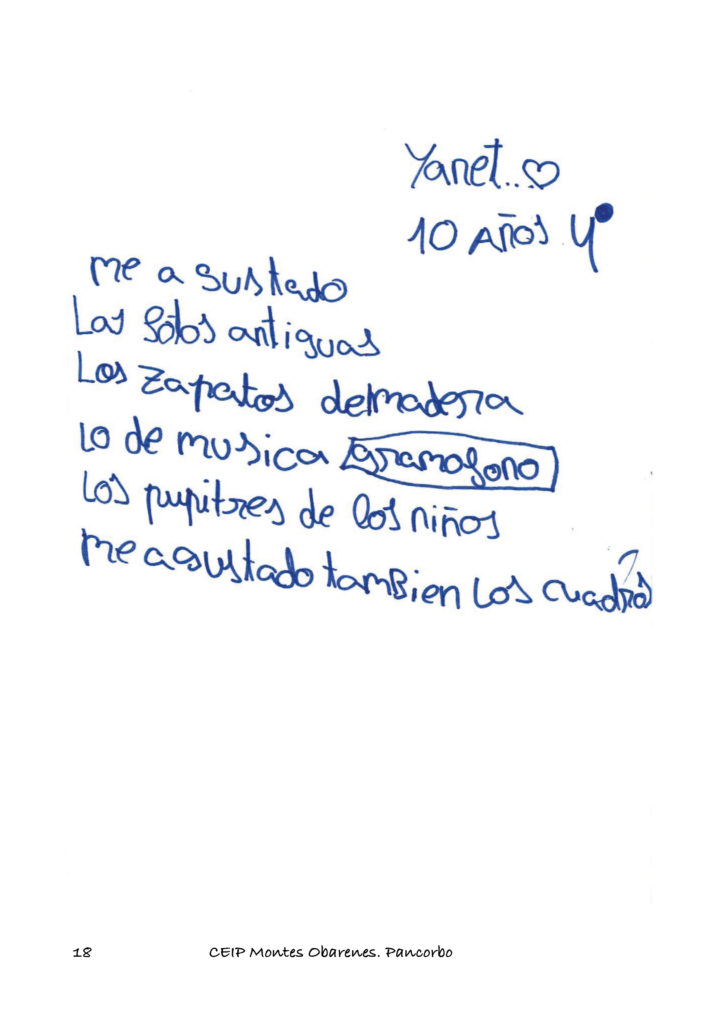 Yanet..♡
10 AÑOS 4º
me a gustado
Las fotos antiguas
Los zapatos demadera
lo de musica gramofono
los pupitres de los niños
me agustado tambien los cuadros
18 CEIP Montes Obarenes. Pancorbo